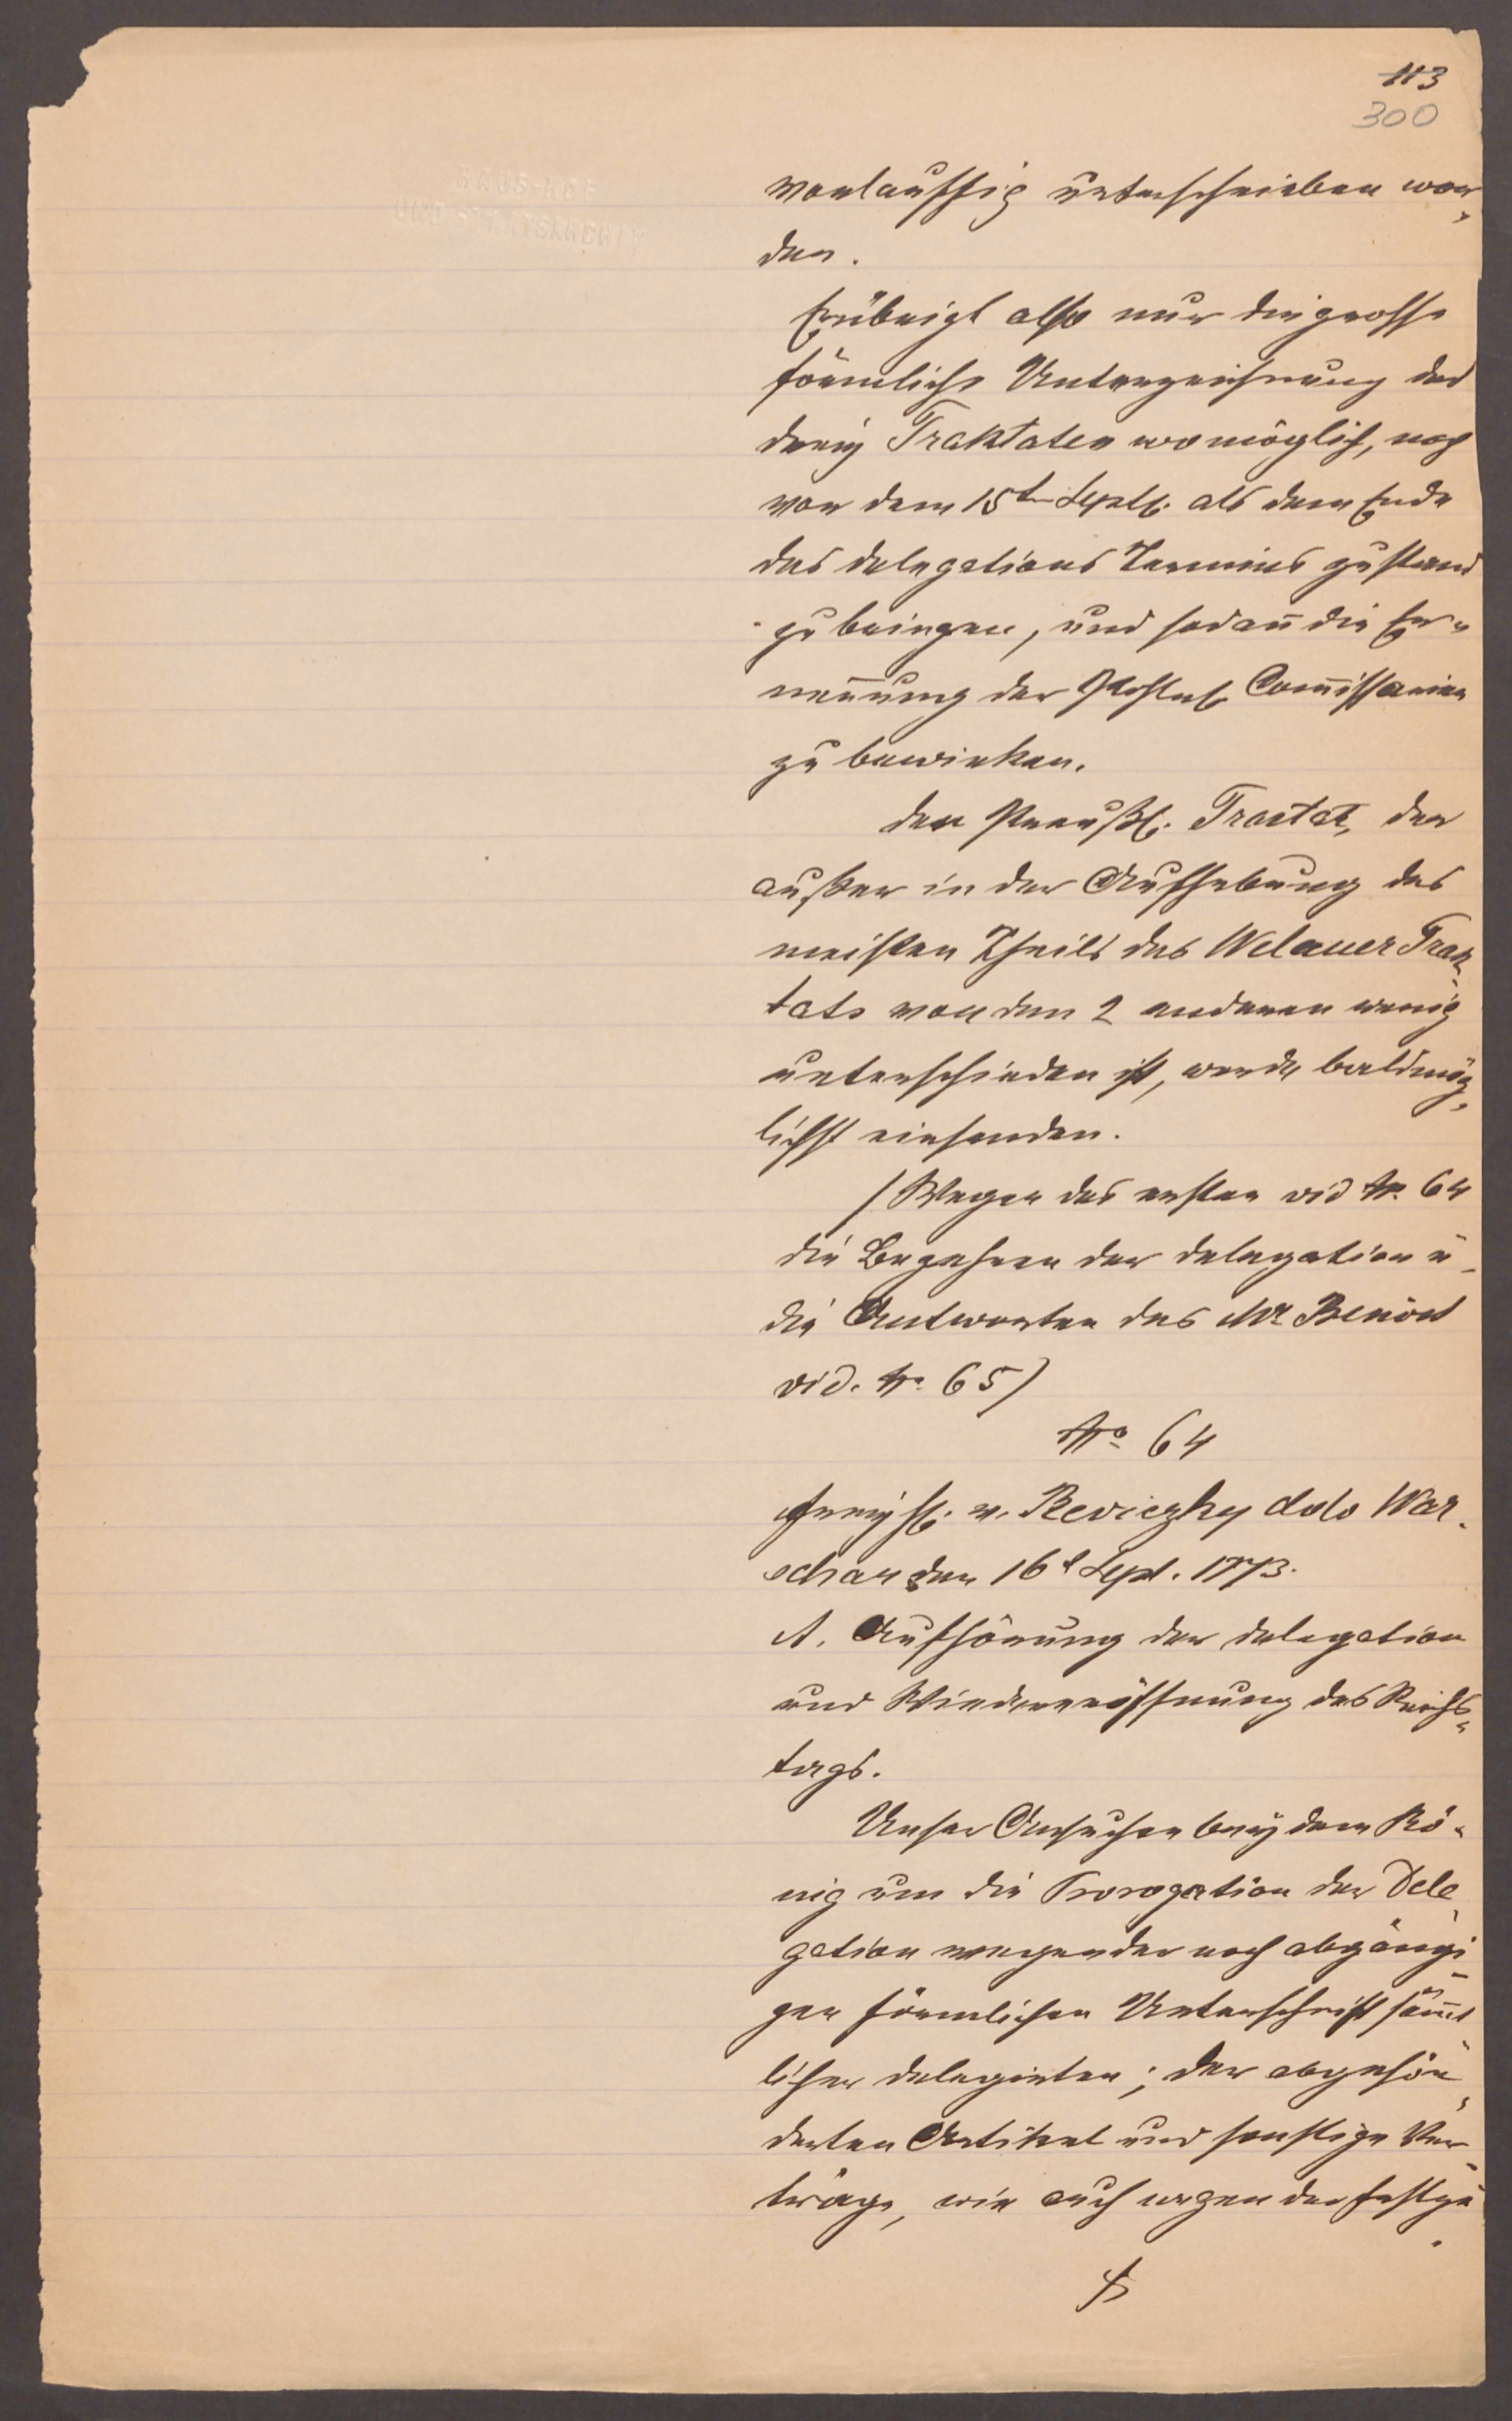 113
300
HAUS-HOF
UND STAATSARCHIV
vorlauffig unterschrieben wor„
den.
Erübrigt also nur die grosse
förmliche Unterzeichnung der
drey Traktaten womöglich, noch
vor dem 15t Septb. als dem Ende
des Delegations Termins zustand
zu bringen, und sodan̄ die Er„
nen̄ung der Com̄issarien
zu bewirken.
Den Preußl. Tractat, der
außer in der Aufhebung des
meisten Theils des Welauer Trak„
tats von den 2 anderen wenig
unterschieden ist, werde baldmög„
lichst einsenden.
/ Wegen des ersten vid No. 64
die Begehren der Delegation u
die Antworten des Mr Benoit
vid. No. 65)
No 64
Freyh. v. Reviczky ddo War„
schau den 16t Sept. 1773.
A. Aufhörung der Delegation
und Wiedereröffnung des Reichs„
tags.
Unser Ansuchen bey dem Kö„
nig um die Prorogation der Dele„
gation wegen der noch abgängi„
gen förmlichen Unterschrift säm̄t„
licher Delegirten; der abgesön„
derten Artikel und sonstige Ver„
träge, wie auch wegen der festzu„